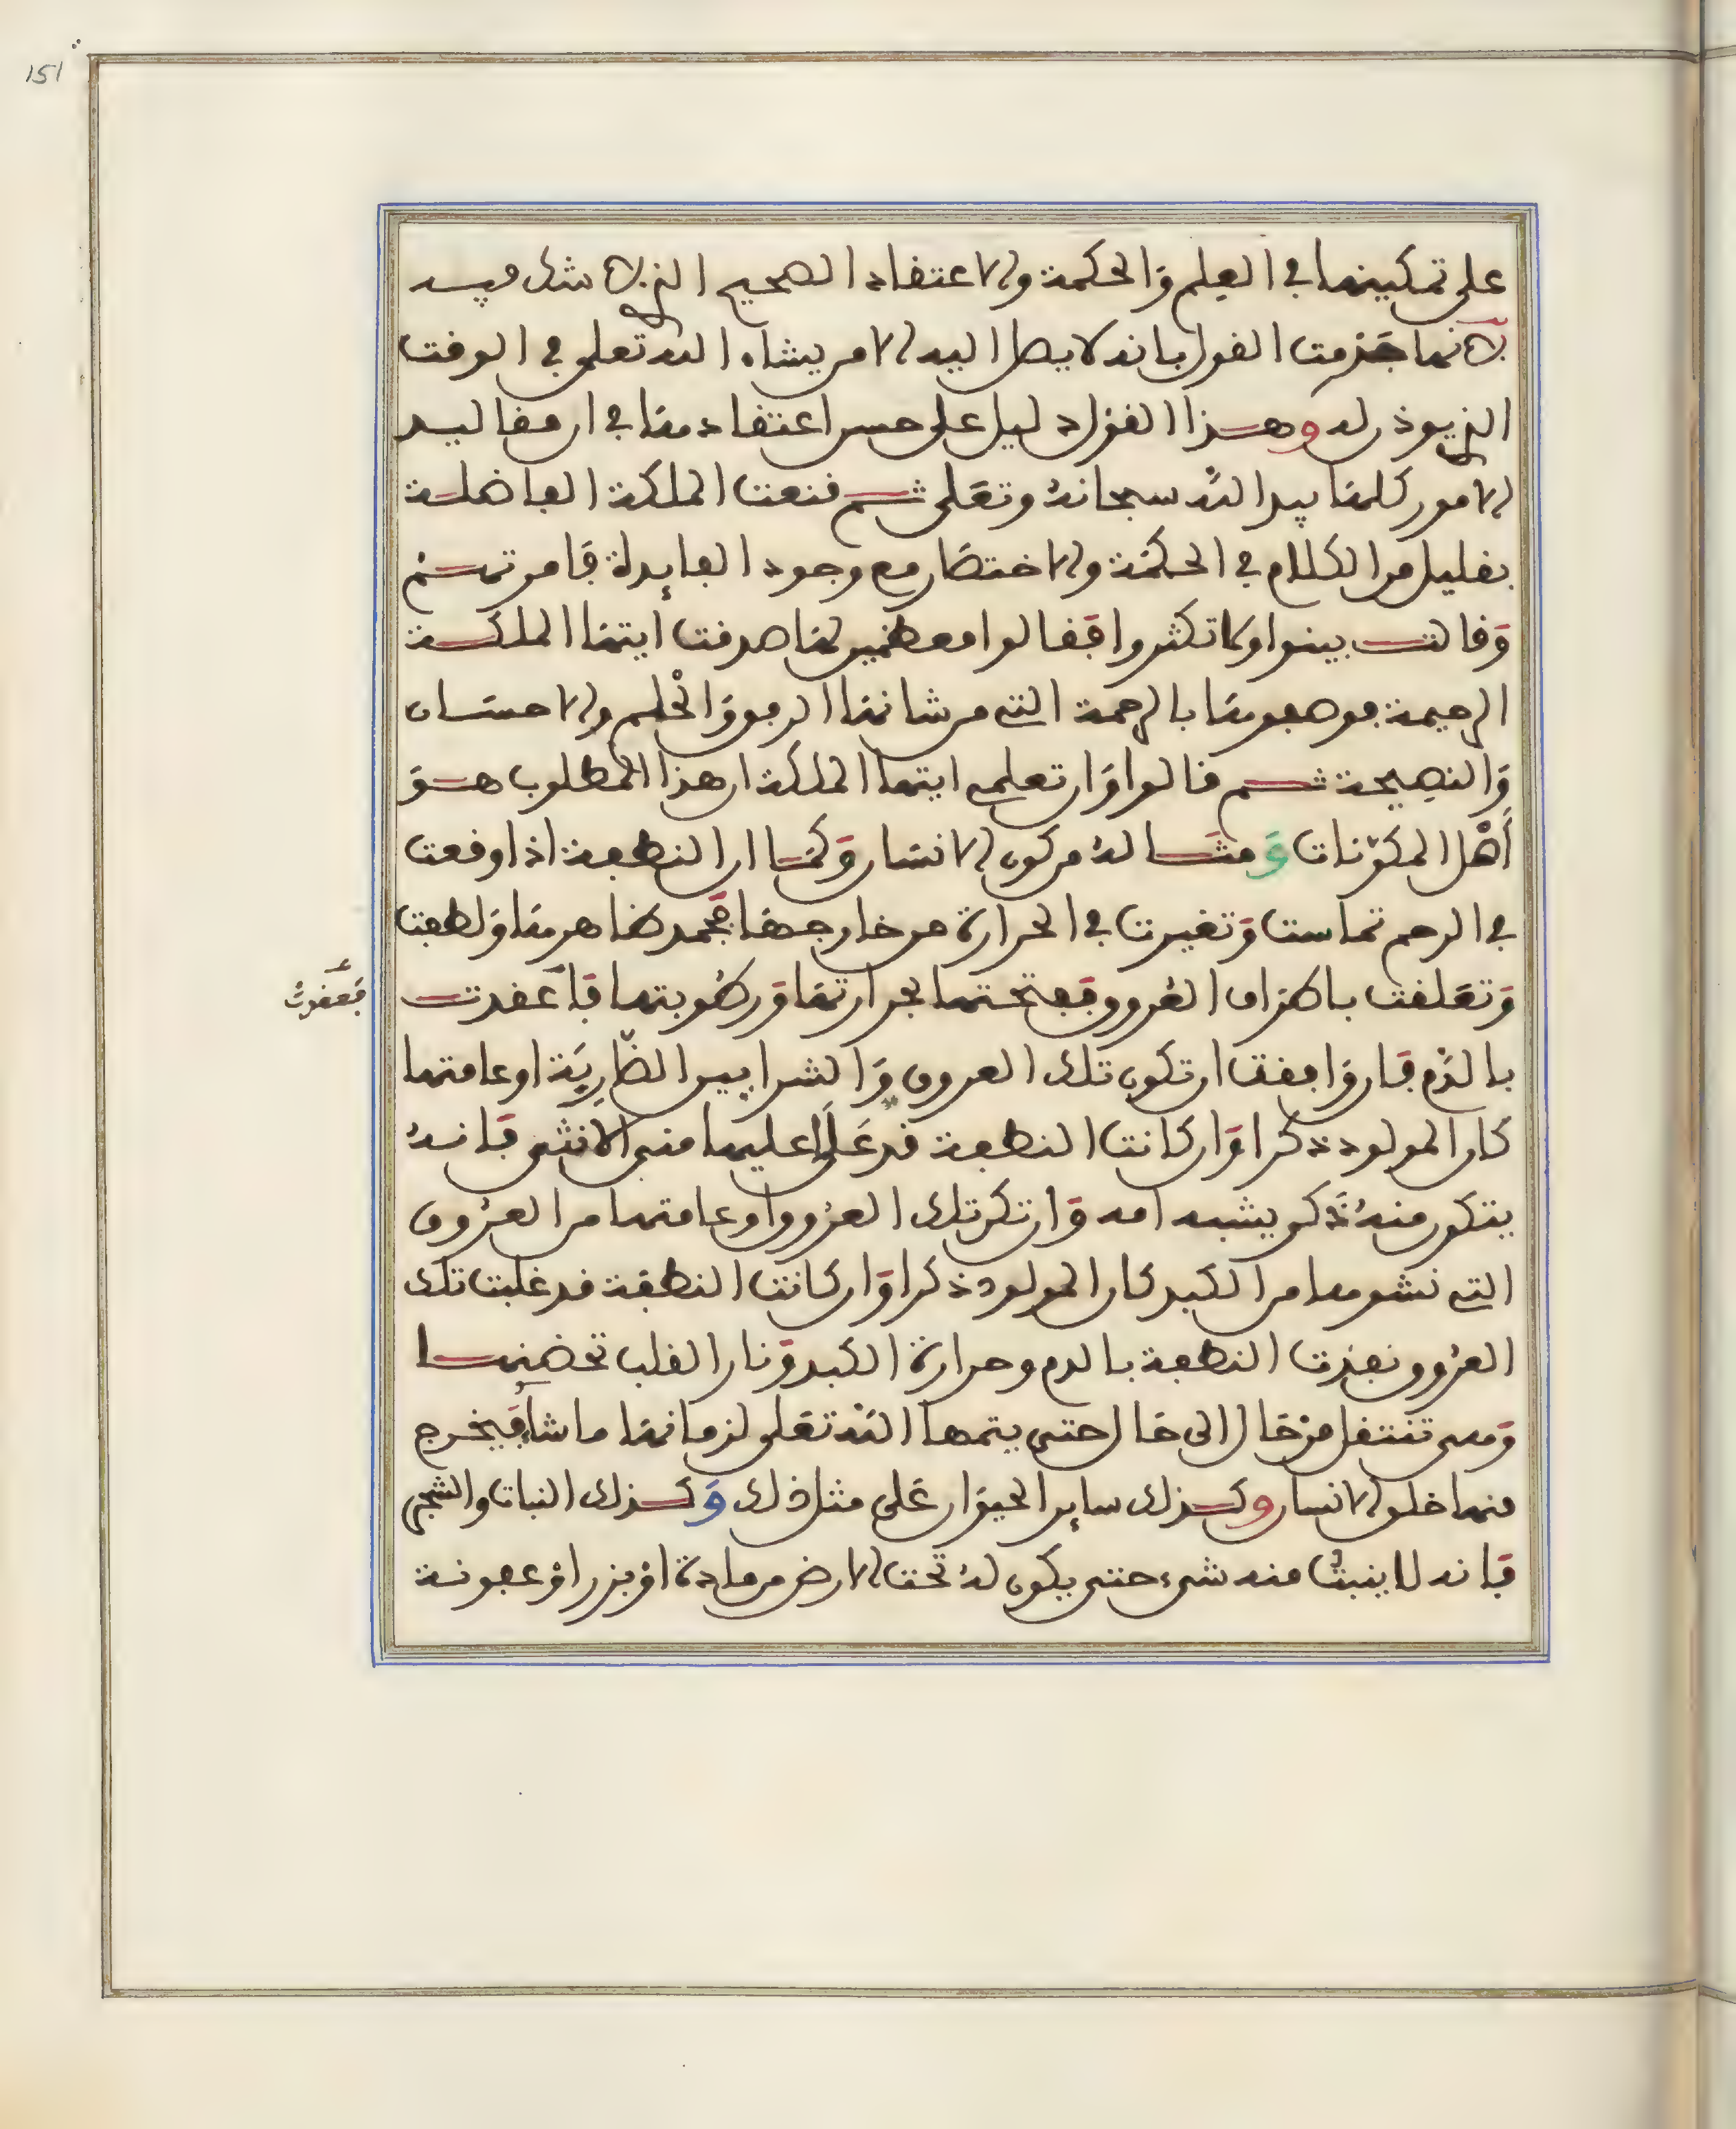 151
على تمكينها في العلم والحكمة والاعتقاد الصحيح الذي لا شك فيه
لانها جزمت القول بانه لا يصل اليه الا من يشاء الله تعلى في الوقت
الذي يوذن له وهذا القول دليل على حسن اعتقاد منها في ان مقاليد
الامور كلها بيد الله سبحانه وتعلى ثم قنعت الملكة الفاضلة
بقليل من الكلام في الحكمة والاختصار مع وجود الفايدة
وقالت بينوا ولا تكثروا فقالوا معظمين لها صدقت ايتها الملكة
الرحيمة بالرحمة التي من شانها الرفق والحلم والاحسان
والنصيحة ثم قالوا وان تعلمي ايتها الملكة ان هذا المطلوب هو
أهل المكونات ومثاله من كون الانسان وكما ان النطفة اذا وقعت
في الرحم تماست وتغيرت في الحرارة من خارجها فجمد ظاهر منها ولطفت
وتعلقت باطراف العروق ففتحتها بحرارتها ورطوبتها فاعقدت
فعقدت
بالدم فان وافقت ان تكون تلك العروق والشرايين الضاربة او عامتها
كان المولود ذكرا وان كانت النطفة قد علا عليها مني الانثى فانه
يتكون منه ذكر يشبه امه وان تكن تلك العروق او عامتها من العروق
التي نشوها من الكبد كان المولود ذكرا وان كانت النطفة قد غلبت تلك
العروق نفذت النطفة بالدم وحرارة الكبد ونار القلب تحضنها
وهي تنتقل من حال الى حال حتى يتمها الله تعلى لزمانها ما شاء فيخرج
منها خلق الانسان وكذلك ساير الحيوان على مثل ذلك وكذلك النبات والشجر
فانه لا ينبت منه شيء حتى يكون له تحت الارض من مادة او بزر او عفونة